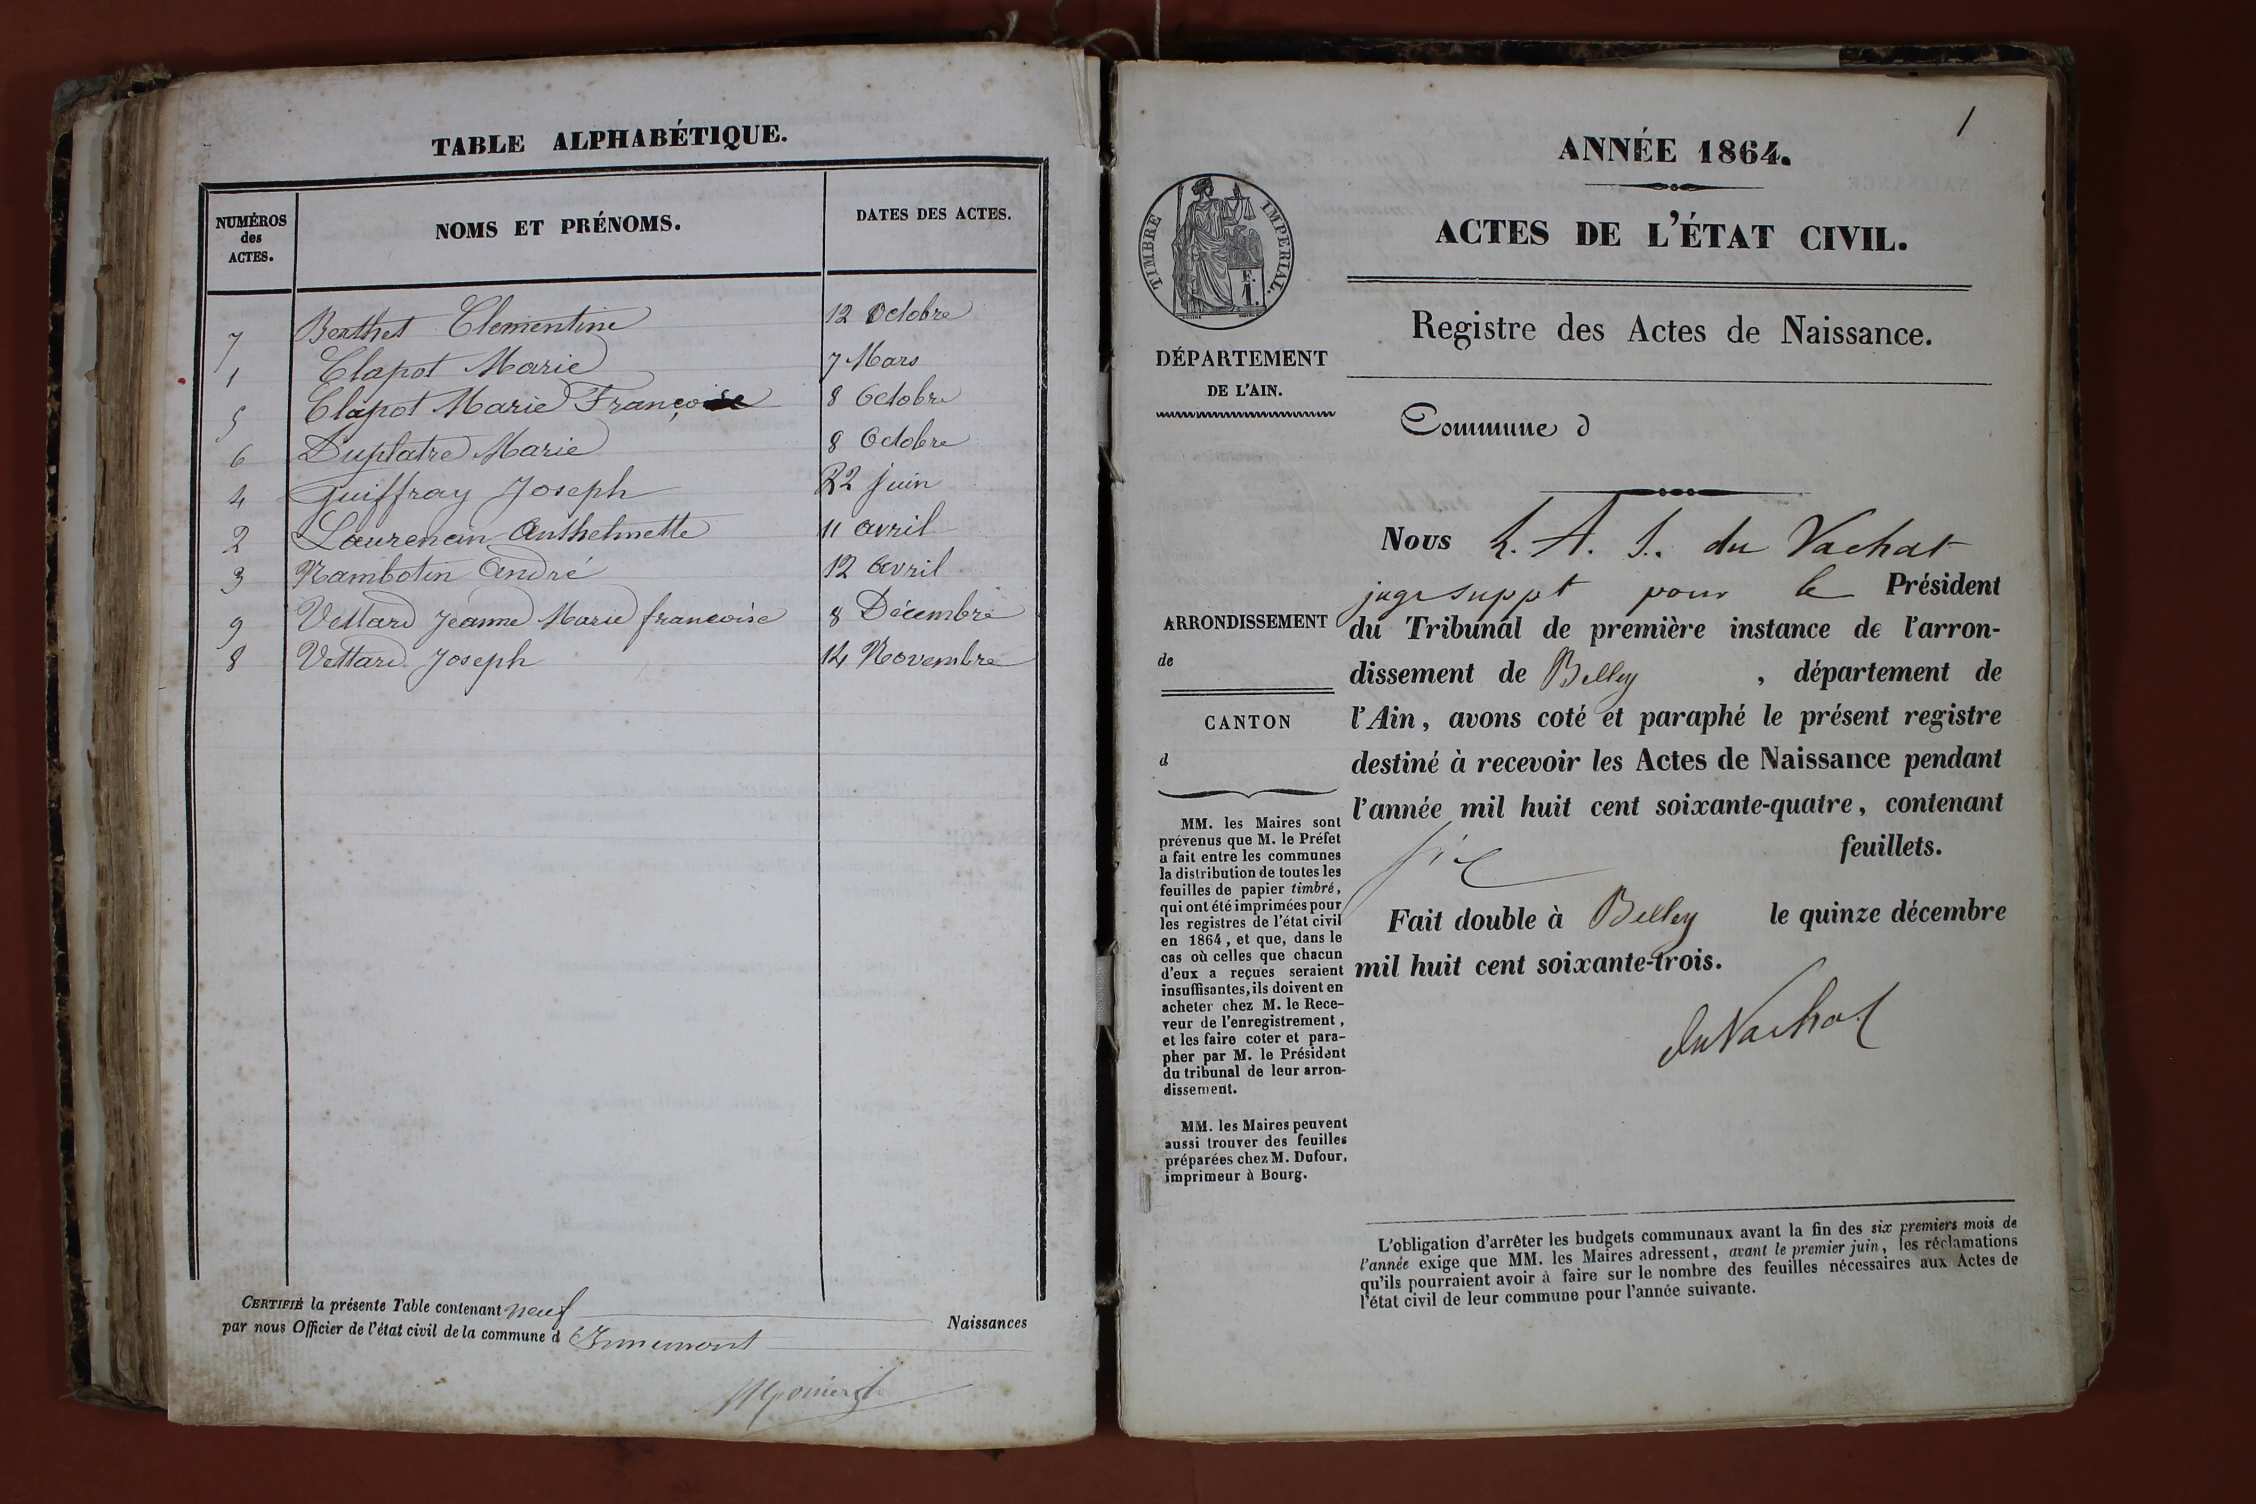 TABLE ALPHABÉTIQUE.
NUMÉROS
des
ACTES.
NOMS ET PRÉNOMS.
DATES DES ACTES.
7 Berthet Clementine 12 Octobre
1 Clapot Marie 7 Mars
5 Clapot Marie Françoise 8 Octobre
6 Duplatre Marie 8 Octobre
4 Guiffray Joseph 22 juin
2 Laurencin Anthelmette 11 avril
3 Rambotin André 12 avril
9 Vettard Jeanne Marie francoise 8 Décembre
8 Vettard Joseph 14 Novembre
CERTIFIÉ la présente Table contenant neuf Naissances
par nous Officier de l'état civil de la commune d
1
ANNÉE 1864.
ACTES DE L'ÉTAT CIVIL.
TIMBRE IMPERIAL.
F.
1.
Registre des Actes de Naissance.
DÉPARTEMENT
DE L'AIN.
Commune d
Nous L. A. J. du Vachat
juge suppt pour le Président
ARRONDISSEMENT
de
du Tribunal de première instance de l'arron-
dissement de Belley , département de
CANTON
d
l'Ain, avons coté et paraphé le présent registre
destiné à recevoir les Actes de Naissance pendant
l'année mil huit cent soixante-quatre, contenant
six feuillets.
Fait double à Belley le quinze décembre
mil huit cent soixante-trois.
du Vachat
MM. les Maires sont
prévenus que M. le Préfet
a fait entre les communes
la distribution de toutes les
feuilles de papier timbré,
qui ont été imprimées pour
les registres de l'état civil
en 1864, et que, dans le
cas où celles que chacun
d'eux a reçues seraient
insuffisantes, ils doivent en
acheter chez M. le Rece-
veur de l'enregistrement,
et les faire coter et para-
pher par M. le Président
du tribunal de leur arron-
dissement.
MM. les Maires peuvent
aussi trouver des feuilles
préparées chez M. Dufour,
imprimeur à Bourg.
L'obligation d'arrêter les budgets communaux avant la fin des six premiers mois de
l'année exige que MM. les Maires adressent, avant le premier juin, les réclamations
qu'ils pourraient avoir à faire sur le nombre des feuilles nécessaires aux Actes de
l'état civil de leur commune pour l'année suivante.